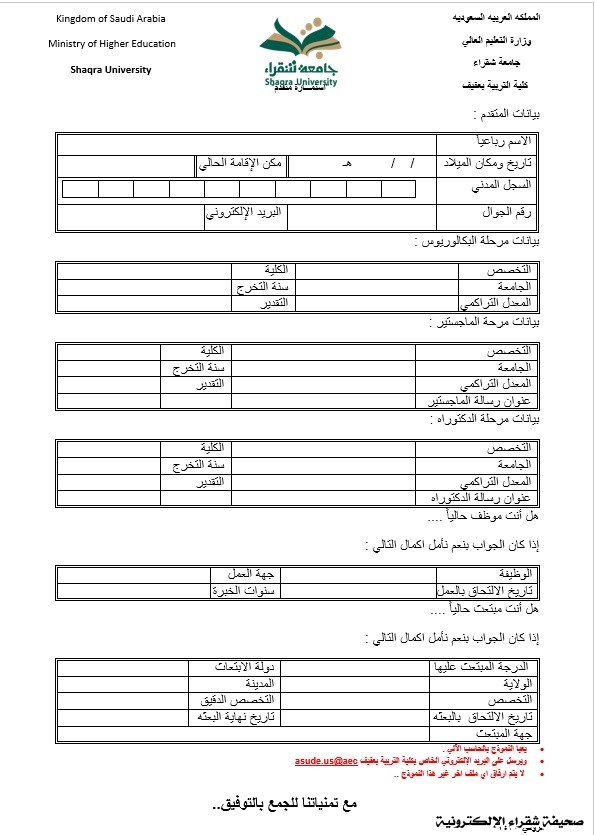 المملكه العربيه السعوديه
وزارة التعليم العالي
جامعة شقراء
كلية التربية بعفيف
Kingdom of Saudi Arabia
Ministry of Higher Education
Shaqra University
جامعة شقراء
Shaqra University
استمــارة متقدم
بيانات المتقدم :
الاسم رباعياً
تاريخ ومكان الميلاد / / هـ مكن الإقامة الحالي
السجل المدني
رقم الجوال البريد الإلكتروني
بيانات مرحلة البكالوريوس :
التخصص الكلية
الجامعة سنة التخرج
المعدل التراكمي التقدير
بيانات مرحة الماجستير :
التخصص الكلية
الجامعة سنة التخرج
المعدل التراكمي التقدير
عنوان رسالة الماجستير
بيانات مرحلة الدكتوراه :
التخصص الكلية
الجامعة سنة التخرج
المعدل التراكمي التقدير
عنوان رسالة الدكتوراه
هل أنت موظف حالياً ....
إذا كان الجواب بنعم نأمل اكمال التالي :
الوظيفة جهة العمل
تاريخ الالتحاق بالعمل سنوات الخبرة
هل أنت مبتعث حالياً ....
إذا كان الجواب بنعم نأمل اكمال التالي :
الدرجة المبتعث عليها دولة الابتعاث
الولاية المدينة
التخصص التخصص الدقيق
تاريخ الالتحاق بالبعثه تاريخ نهاية البعثه
جهة المبتعث
• يعبا النموذج بالحاسب الألي .
• ويرسل على البريد الإلكتروني الخاص بكلية التربية بعفيف asude.us@aec
• لا يتم ارفاق اي ملف اخر غير هذا النموذج ..
مع تمنياتنا للجمع بالتوفيق..
صحيفة شقراء الإلكترونية